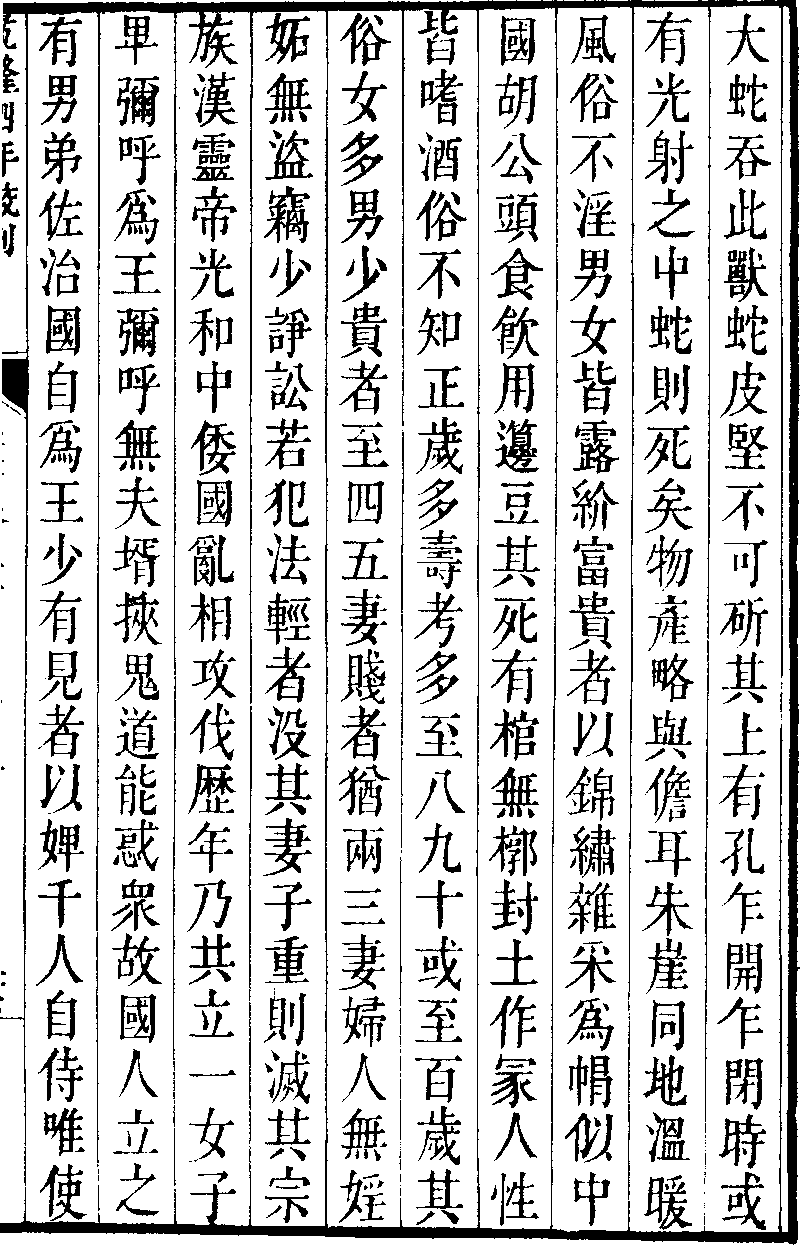 大蛇吞此獸蛇皮堅不可斫其上有孔乍開乍閉時或
有光射之中蛇則死矣物產略與儋耳朱崖同地溫暖
風俗不淫男女皆露紒富貴者以錦繡雜采爲帽似中
國胡公頭食飲用籩豆其死有棺無槨封土作冢人性
皆嗜酒俗不知正歲多壽考多至八九十或至百歲其
俗女多男少貴者至四五妻賤者猶兩三妻婦人無婬
妬無盜竊少諍訟若犯法輕者没其妻子重則滅其宗
族漢靈帝光和中倭國亂相攻伐歷年乃共立一女子
卑彌呼爲王彌呼無夫壻挾鬼道能惑衆故國人立之
有男弟佐治國自爲王少有見者以婢千人自侍唯使
乾隆四年校刊